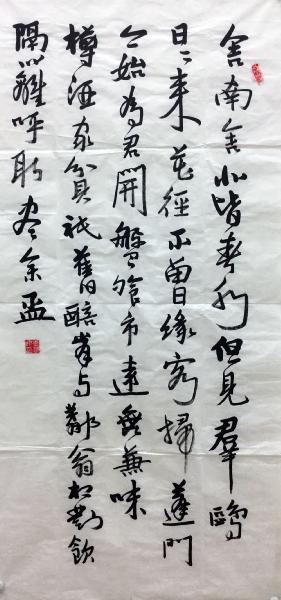 舍南舍北皆春水但見羣鷗
日々来花徑不曾緣客掃蓬門
今始為君開盤飧市遠無兼味
樽酒家貧祇舊醅肯与鄰翁相對飲
隔籬呼取盡余盃